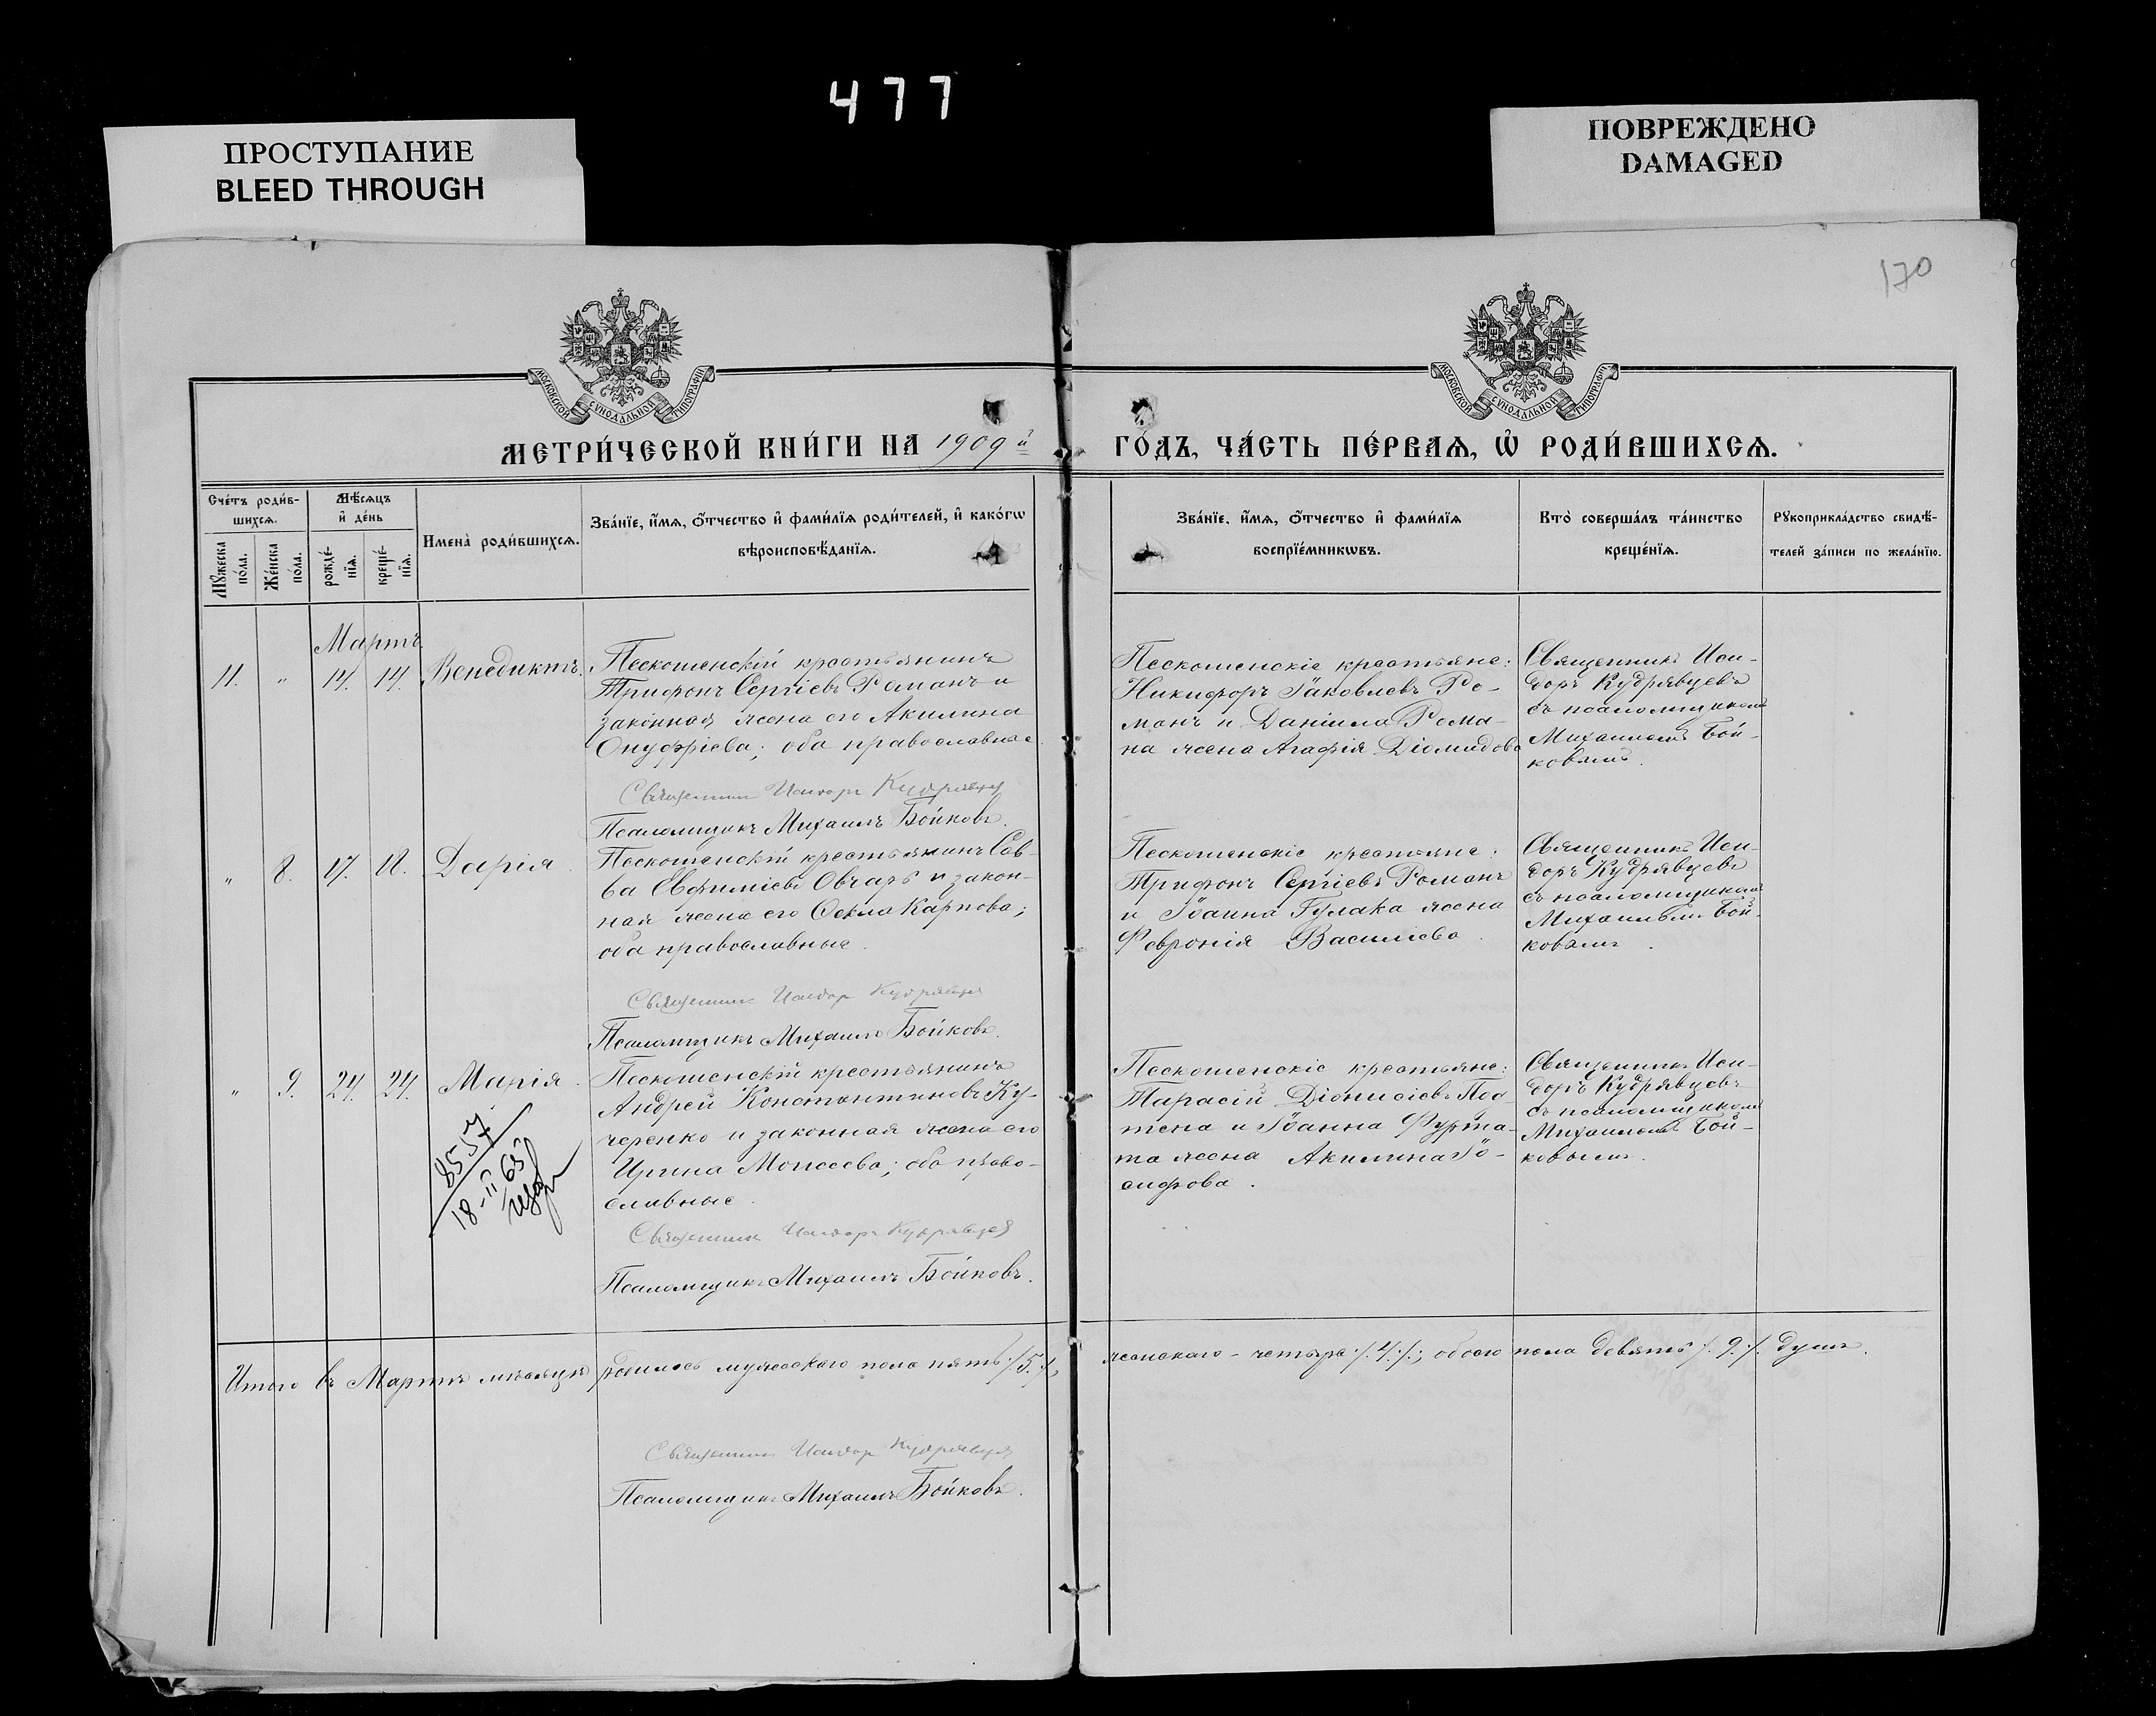 477
ПРОСТУПАНИЕ
BLEED THROUGH
ПОВРЕЖДЕНО
DAMAGED
170
МОСКОВСКОЙ СУНОДАЛЬНОЙ ТИПОГРАФІИ
МОСКОВСКОЙ СУНОДАЛЬНОЙ ТИПОГРАФІИ
МЕТРИ́ЧЕСКОЙ КНИ́ГИ НА 1909й
ГО́ДЪ, ЧА́СТЬ ПЕ́РВАѦ, Ѡ҆ РОДИ́ВШИХСѦ.
Сче́тъ роди́в-
шихсѧ.
Мꙋ́жеска
по́ла.
Же́нска
по́ла.
Мѣ́сѧцъ
и҆ де́нь
рожде́-
нїѧ.
креще́-
нїѧ.
Имена̀ роди́вшихсѧ.
Зва́нїе, и҆́мѧ, ѻ҆́тчество и҆ фами́лїѧ роди́телей, и҆ како́гѡ
вѣроисповѣ́данїѧ.
Зва́нїе, и҆́мѧ, ѻ҆́тчество и҆ фами́лїѧ
воспрїе́мникѡвъ.
Кто̀ соверша́лъ та́инство
креще́нїѧ.
Рꙋкоприкла́дство свидѣ́-
телей за́писи по жела́нїю.
Мартъ
11. " 14. 14. Венедиктъ.
Пескошенскій крестьянинъ
Трифонъ Сергіевъ Романъ и
законная жена его Акилина
Онуфріева; оба православные
Священник Исидор Кудрявцев
Псаломщикъ Михаилъ Бойковъ.
Пескошенскіе крестьяне:
Никифоръ Іаковлевъ Ро-
манъ и Даніила Рома-
на жена Агафія Діомидова
Священникъ Иси-
доръ Кудрявцевъ
съ псаломщикомъ
Михаиломъ Бой-
ковымъ.
" 8. 17. 18. Дарія.
Пескошенскій крестьянинъ Сав-
ва Евфиміевъ Овчаръ и закон-
ная жена его Ѳекла Карпова;
оба православные.
Священник Исидор Кудрявцев
Псаломщикъ Михаилъ Бойковъ.
Пескошенскіе крестьяне:
Трифонъ Сергіевъ Романъ
и Іоанна Гулака жена
Февронія Василіева.
Священникъ Иси-
доръ Кудрявцевъ
съ псаломщикомъ
Михаиломъ Бой-
ковымъ.
" 9. 24. 24. Марія.
8557
18-II 65
Пескошенскій крестьянинъ
Андрей Константиновъ Ку-
черенко и законная жена его
Ирина Моисеева; оба право-
славные.
Священник Исидор Кудрявцев
Псаломщикъ Михаилъ Бойковъ.
Пескошенскіе крестьяне:
Тарасій Діонисіевъ Пос-
тена и Іоанна Фурта-
та жена Акилина Іо-
сифова.
Священникъ Иси-
доръ Кудрявцевъ
съ псаломщикомъ
Михаиломъ Бой-
ковымъ.
Итого въ Мартѣ мѣсяцѣ родилось мужескаго пола пять /.5./, женскаго – четыре /.4./; обоего пола девять /.9./ душъ.
Священник Исидор Кудрявцев
Псаломщикъ Михаилъ Бойковъ.